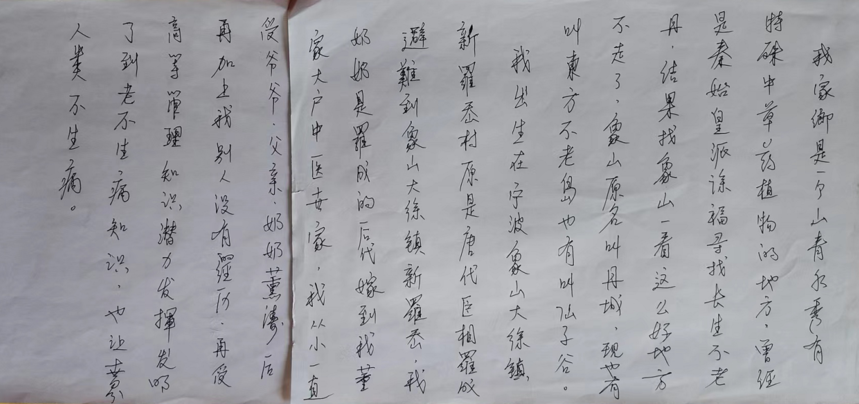 我家乡是一个山青水秀有
特殊中草药植物的地方,曾经
是秦始皇派徐福寻找长生不老
丹,结果找象山一看这么好地方
不走了,象山原名叫丹城,现也有
叫東方不老岛也有叫仙子谷。
我出生在宁波象山大徐镇
新羅岙村原是唐代臣相羅成
避難到象山大徐镇新羅岙,我
奶奶是羅成的后代嫁到我董
家大户中医世家,我从小一直
受爷爷.父亲.奶奶薰涛后
再加上我别人没有羅历.再受
高学管理知识潜力发揮发明
了到老不生病知识,也让
人类不生病。